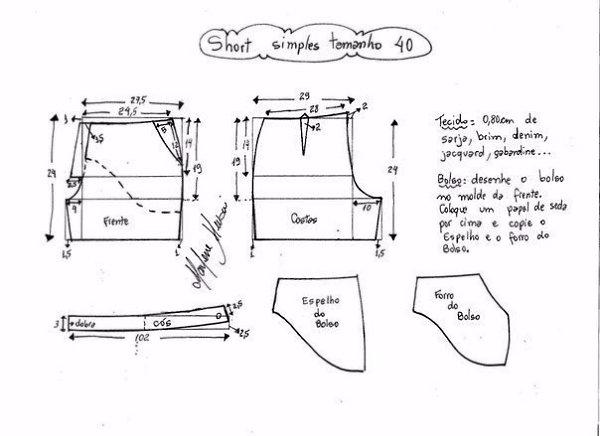 Short simples tamanho 40
27,5
24,5
3
3,5
8
12
14
19
29
2,5
4
Frente
1,5
1
29
28
2
2
14
19
29
10
Costas
1
1,5
Tecido: 0,80cm de
sarja, brim, denim,
jacquard, gabardine...
Bolso: desenhe o bolso
no molde da frente.
Coloque um papel de seda
por cima e copie o
Espelho e o forro do
Bolso.
3
dobra
cós
2,5
2,5
102
Espelho
do
Bolso
Forro
do
Bolso